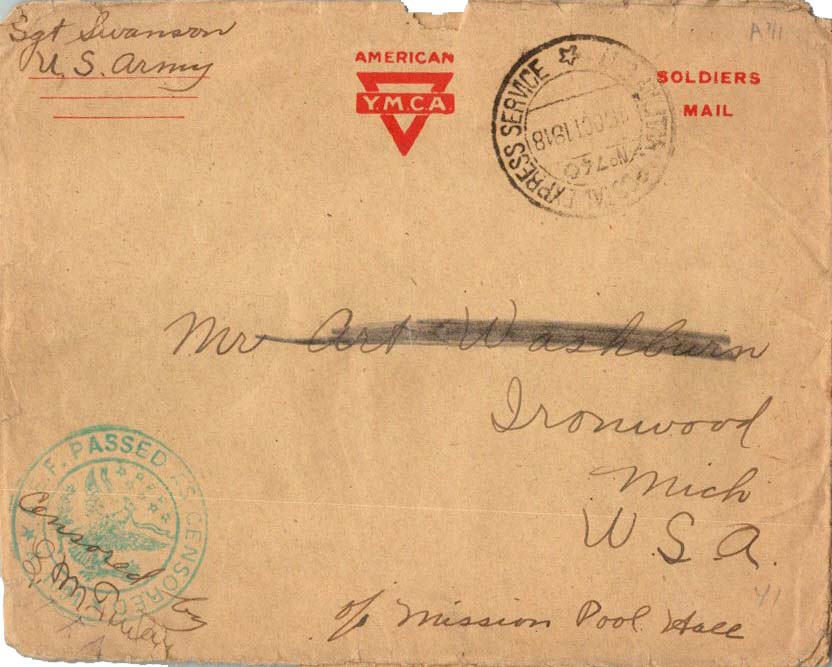 Sgt Swanson
U. S. Army
AMERICAN
Y.M.C.A.
SOLDIERS
MAIL
A 41
POSTAL EXPRESS SERVICE
OCT 1918
No 740
Mr Art Washburn
Ironwood
Mich
U S A.
c/o Mission Pool Hall
41
A.E.F. PASSED AS CENSORED
Censored by